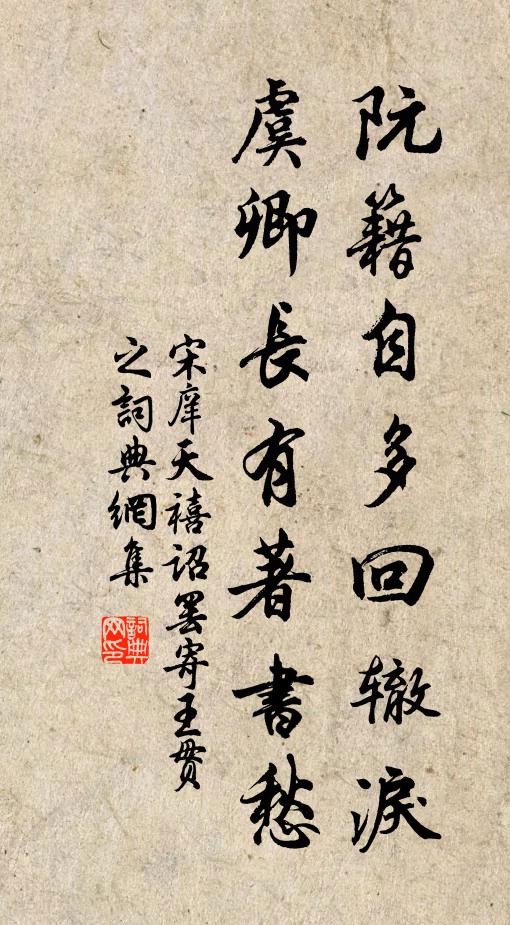 阮籍自多回辙淚
虞卿長有著書愁
宋庠天禧詔罢寄王貫
之詞典網集
詞典网印